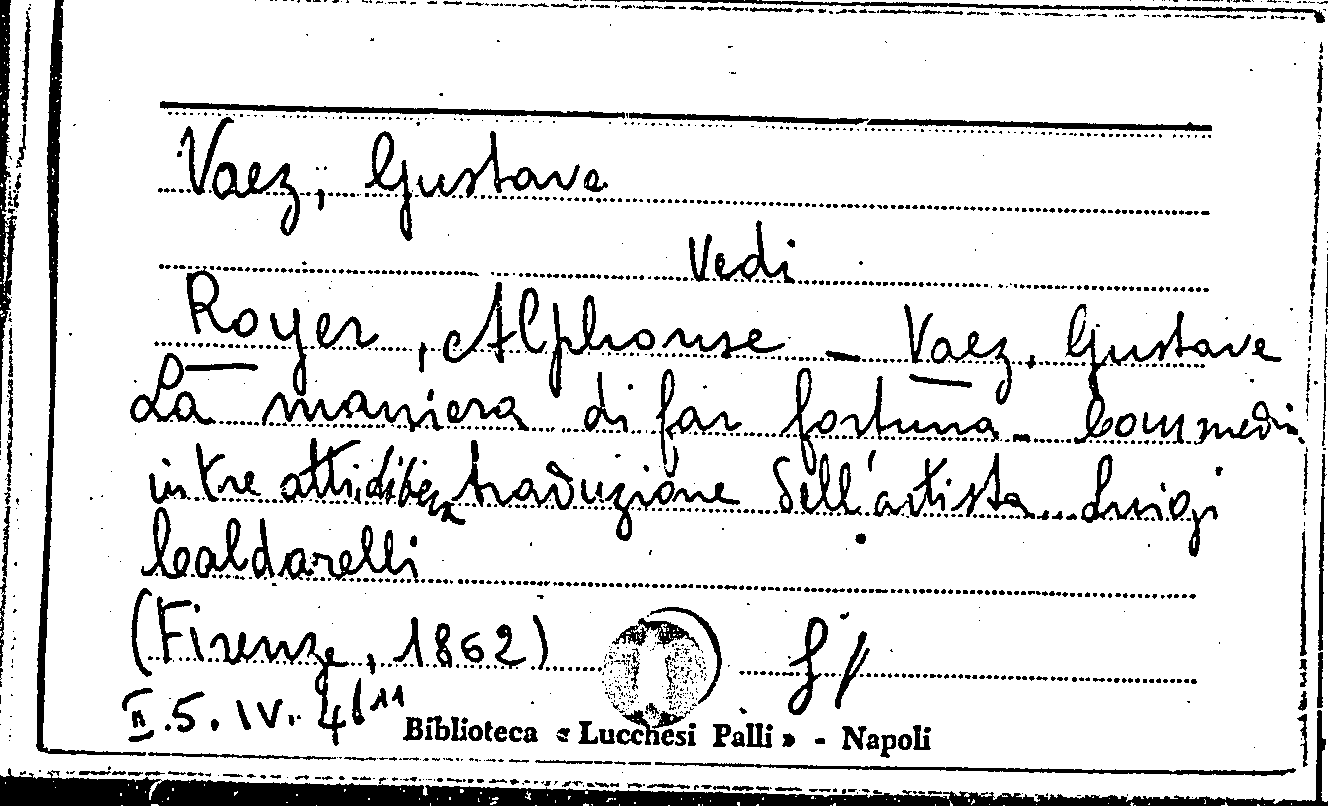 Vaez, Gustave
Vedi
Royer, Alphonse – Vaez, Gustave
La maniera di far fortuna – Commedia
in tre atti, libera traduzione dell'artista Luigi
Caldarelli
(Firenze, 1862)
II.5.IV.
Biblioteca « Lucchesi Palli » - Napoli